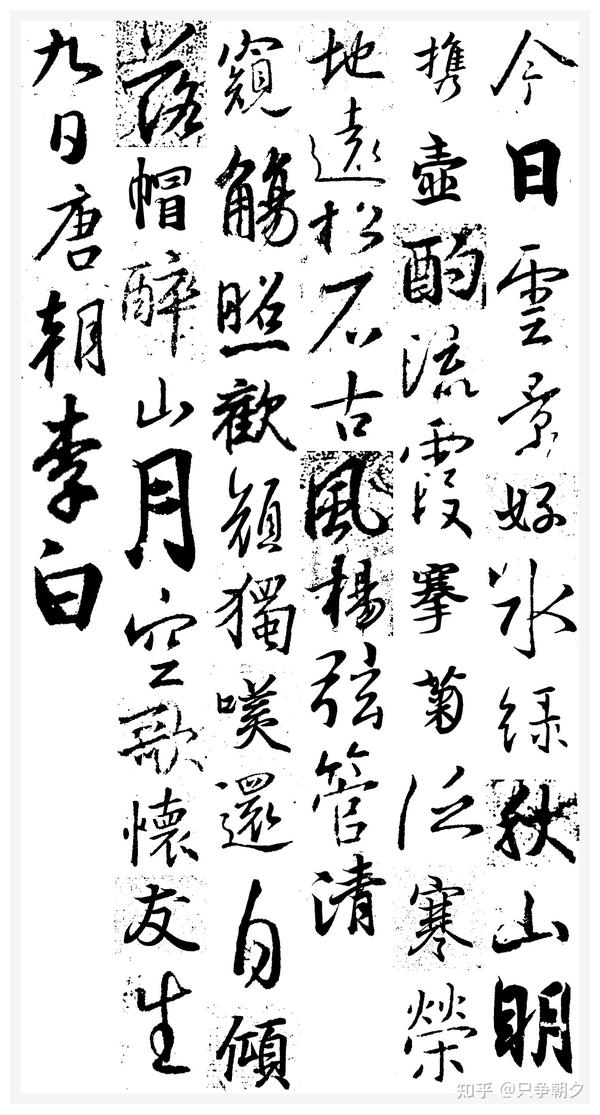 今日雲景好水綠秋山明
携壺酌流霞搴菊泛寒榮
地遠松石古風楊弦管清
窺觴照歡顔獨嘆還自傾
落帽醉山月空歌懷友生
九日唐朝李白
知乎 @只争朝夕